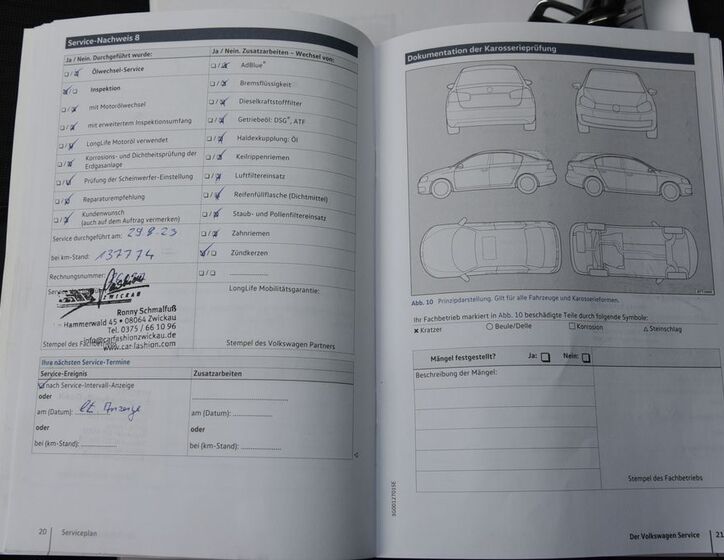 Service-Nachweis 8
Ja / Nein. Durchgeführt wurde:
Ölwechsel-Service
Inspektion
mit Motorölwechsel
mit erweitertem Inspektionsumfang
LongLife Motoröl verwendet
Korrosions- und Dichtheitsprüfung der
Erdgasanlage
Prüfung der Scheinwerfer-Einstellung
Reparaturempfehlung
Kundenwunsch
(auch auf dem Auftrag vermerken)
Service durchgeführt am: 29.8.23
bei km-Stand: 137774
Rechnungsnummer:
ZWICKAU
Ronny Schmalfuß
Hammerwald 45 • 08064 Zwickau
Tel. 0375 / 66 10 96
info@carfashionzwickau.de
www.car-fashion.com
Stempel des
Ja / Nein. Zusatzarbeiten – Wechsel von:
AdBlue®
Bremsflüssigkeit
Dieselkraftstofffilter
Getriebeöl: DSG®, ATF
Haldexkupplung: Öl
Keilrippenriemen
Luftfiltereinsatz
Reifenfüllflasche (Dichtmittel)
Staub- und Pollenfiltereinsatz
Zahnriemen
Zündkerzen
LongLife Mobilitätsgarantie:
Stempel des Volkswagen Partners
Ihre nächsten Service-Termine
Service-Ereignis
nach Service-Intervall-Anzeige
oder
am (Datum): lt. Anzeige
oder
bei (km-Stand):
Zusatzarbeiten
am (Datum):
oder
bei (km-Stand):
20 Serviceplan
Dokumentation der Karosserieprüfung
Abb. 10 Prinzipdarstellung. Gilt für alle Fahrzeuge und Karosserieformen.
Ihr Fahrzeug markiert in Abb. 10 beschädigte Teile durch folgende Symbole:
x Kratzer ○ Beule/Delle □ Korrosion △ Steinschlag
Mängel festgestellt? Ja: Nein:
Beschreibung der Mängel:
Stempel des Fachbetriebs
Der Volkswagen Service 21